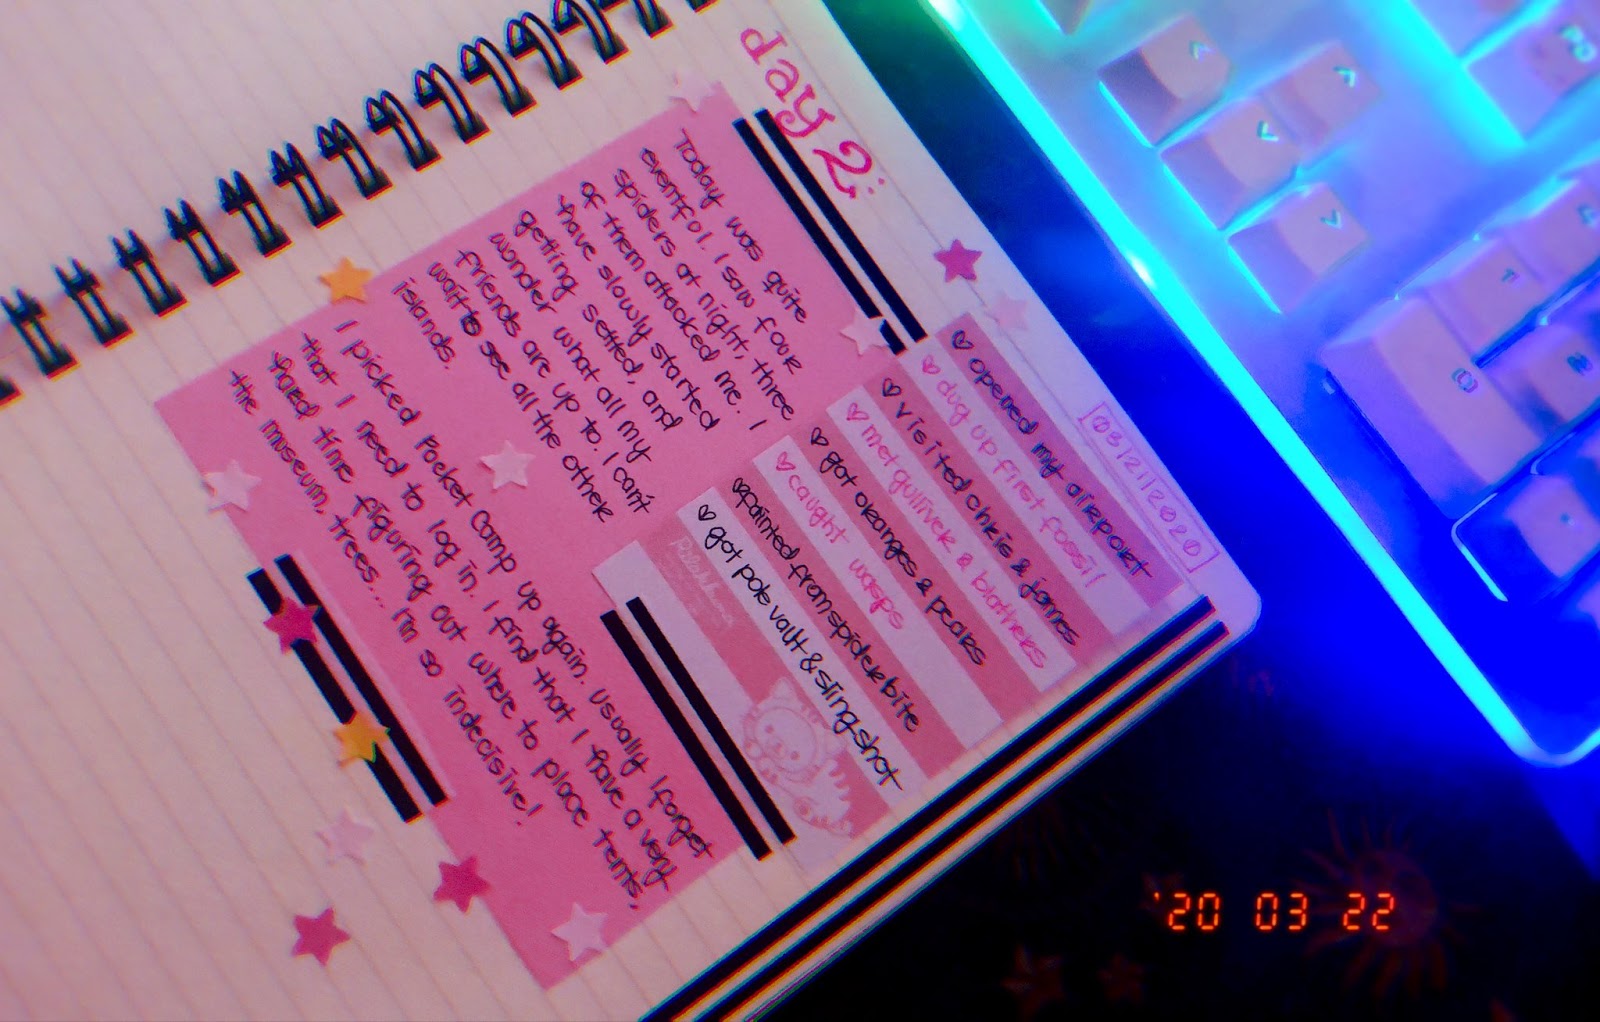 day 2:
03/21/2020
Today was quite
eventful. I saw four
spiders at night, three
of them attacked me. I
have slowly started
getting settled, and
wonder what all my
friends are up to. I can't
wait to see all the other
islands.
I picked Pocket Camp up again. Usually I forget
that I need to log in. I find that I have a very
hard time figuring out where to place tents,
the museum, trees... I'm so indecisive!
♡ opened my airport
♡ dug up first fossil
♡ visited chris & james
♡ met gulliver & blathers
♡ got oranges & pears
♡ caught wasps
♡ painted from spider bite
♡ got pole vault & slingshot
'20 03 22